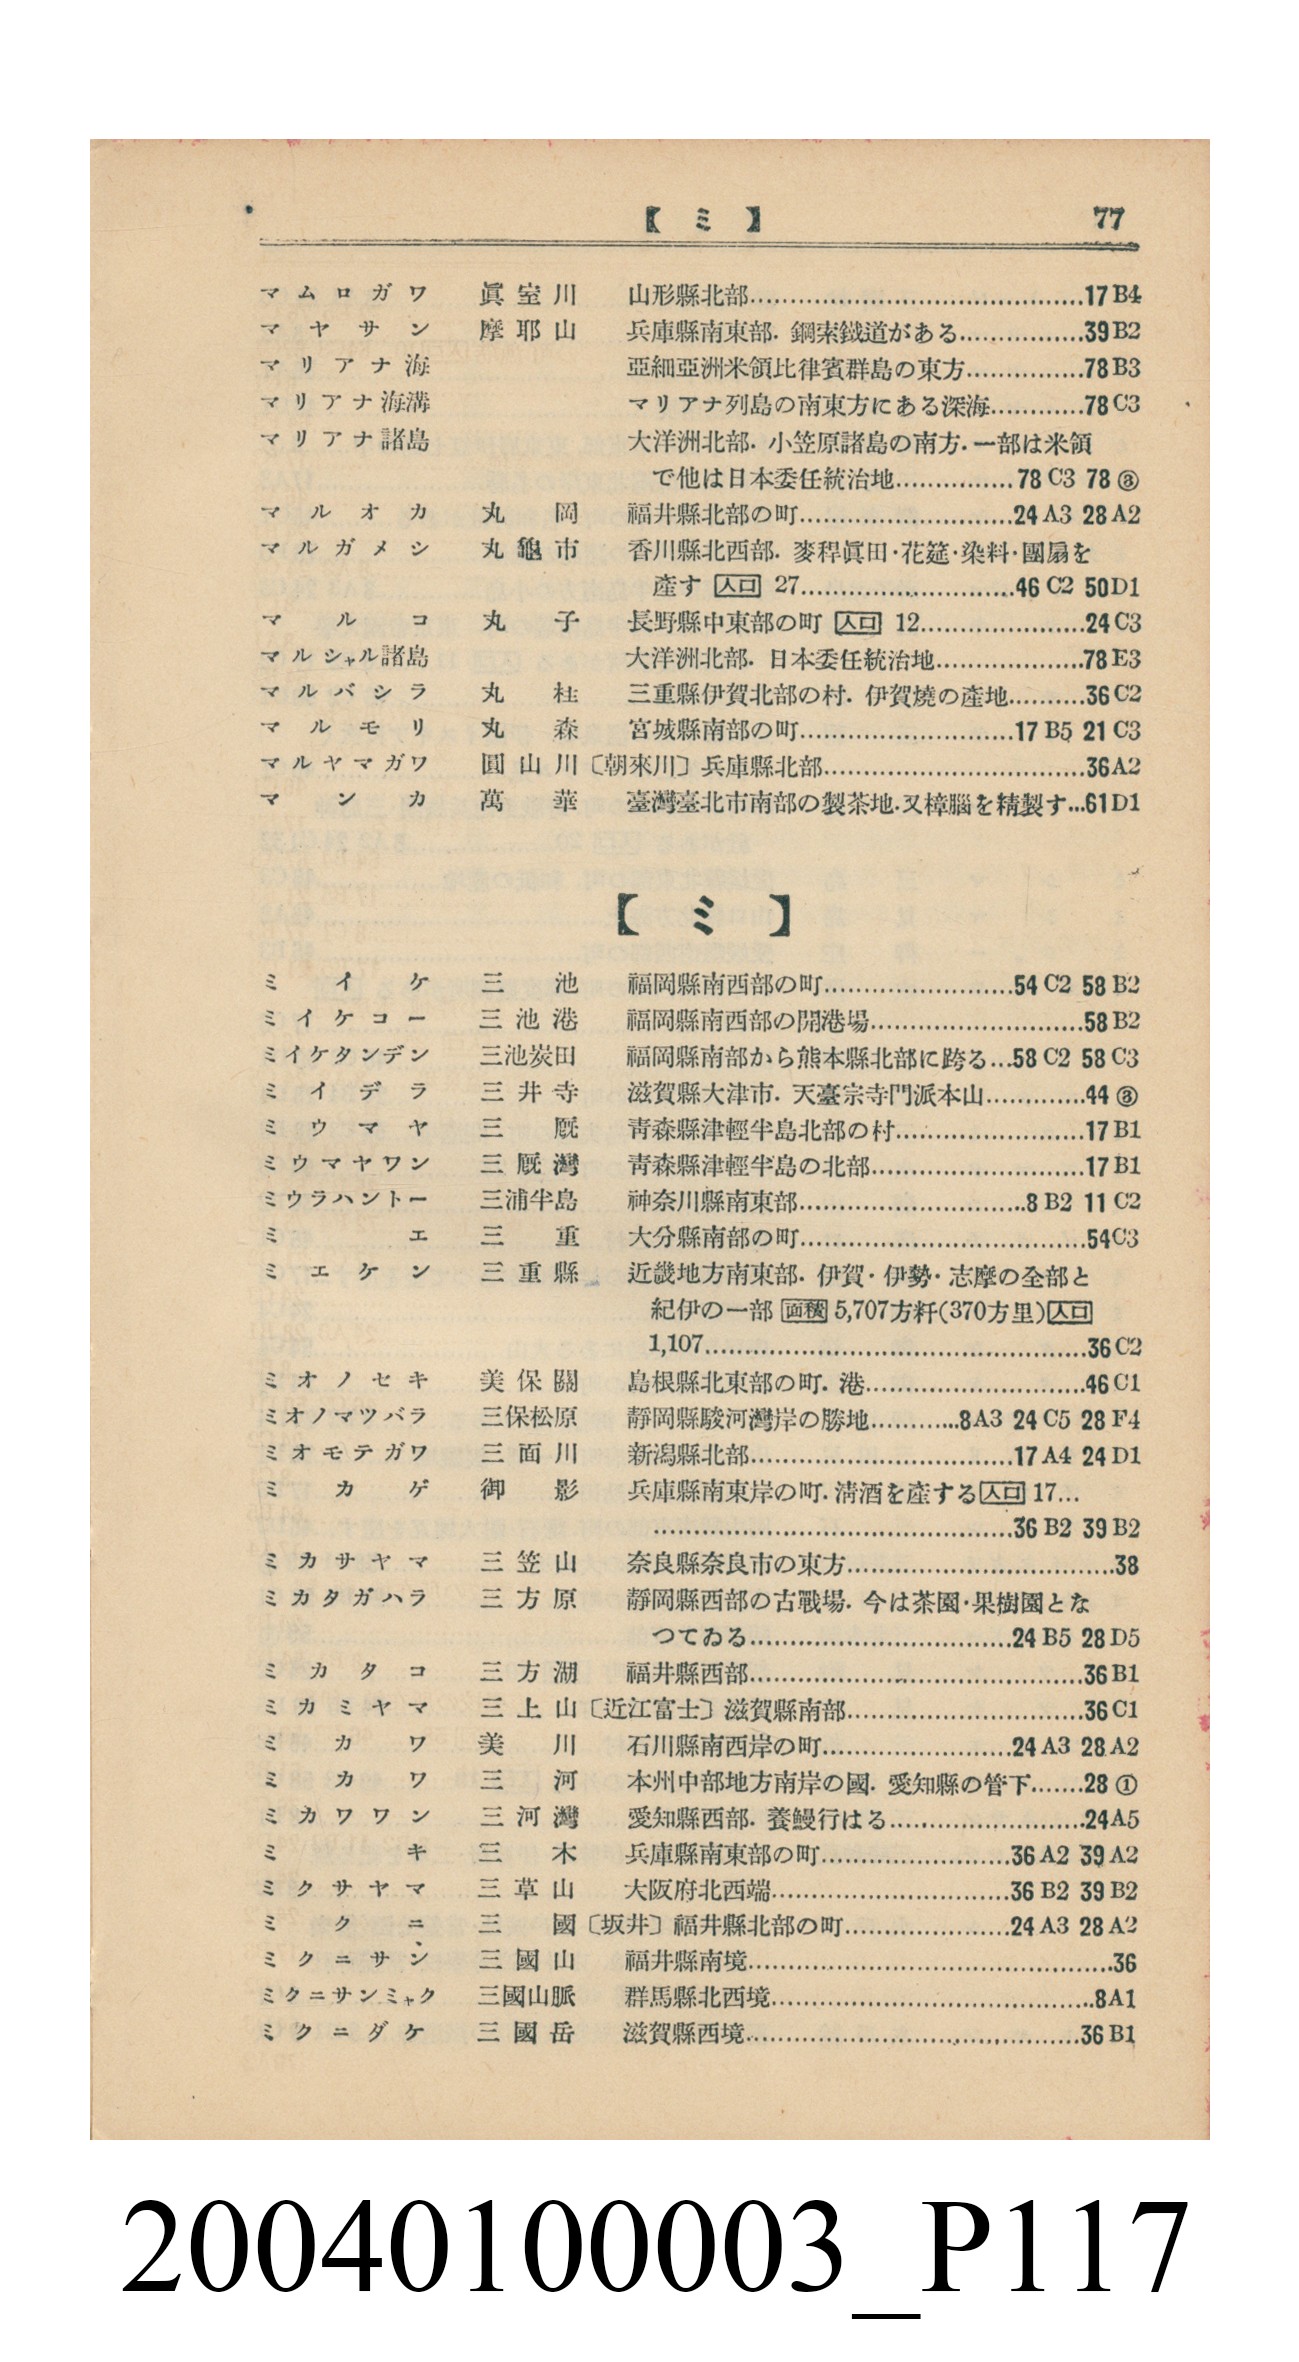 【 ミ 】 77
マムロガワ 眞室川 山形縣北部……17 B4
マヤサン 摩耶山 兵庫縣南東部. 鋼索鐵道がある……39 B2
マリアナ海 亞細亞洲米領比律賓群島の東方……78 B3
マリアナ海溝 マリアナ列島の南東方にある深海……78 C3
マリアナ諸島 大洋洲北部. 小笠原諸島の南方. 一部は米領
で他は日本委任統治地……78 C3 78 ③
マルオカ 丸岡 福井縣北部の町……24 A3 28 A2
マルガメシ 丸龜市 香川縣北西部. 麥稈眞田·花筵·染料·團扇を
産す 人口 27……46 C2 50 D1
マルコ 丸子 長野縣中東部の町 人口 12……24 C3
マルシャル諸島 大洋洲北部. 日本委任統治地……78 E3
マルバシラ 丸柱 三重縣伊賀北部の村. 伊賀燒の産地……36 C2
マルモリ 丸森 宮城縣南部の町……17 B5 21 C3
マルヤマガワ 圓山川〔朝來川〕兵庫縣北部……36 A2
マンカ 萬華 臺灣臺北市南部の製茶地.又樟腦を精製す…61 D1
【 ミ 】
ミイケ 三池 福岡縣南西部の町……54 C2 58 B2
ミイケコー 三池港 福岡縣南西部の開港場……58 B2
ミイケタンデン 三池炭田 福岡縣南部から熊本縣北部に跨る…58 C2 58 C3
ミイデラ 三井寺 滋賀縣大津市. 天臺宗寺門派本山……44 ③
ミウマヤ 三厩 靑森縣津輕半島北部の村……17 B1
ミウマヤワン 三厩灣 靑森縣津輕半島の北部……17 B1
ミウラハントー 三浦半島 神奈川縣南東部……8 B2 11 C2
ミエ 三重 大分縣南部の町……54 C3
ミエケン 三重縣 近畿地方南東部. 伊賀·伊勢·志摩の全部と
紀伊の一部 面積 5,707方粁(370方里) 人口
1,107……36 C2
ミオノセキ 美保關 島根縣北東部の町. 港……46 C1
ミオノマツバラ 三保松原 靜岡縣駿河灣岸の勝地……8 A3 24 C5 28 F4
ミオモテガワ 三面川 新潟縣北部……17 A4 24 D1
ミカゲ 御影 兵庫縣南東岸の町. 淸酒を産する 人口 17…
……36 B2 39 B2
ミカサヤマ 三笠山 奈良縣奈良市の東方……38
ミカタガハラ 三方原 靜岡縣西部の古戰場. 今は茶園·果樹園とな
つてゐる……24 B5 28 D5
ミカタコ 三方湖 福井縣西部……36 B1
ミカミヤマ 三上山〔近江富士〕滋賀縣南部……36 C1
ミカワ 美川 石川縣南西岸の町……24 A3 28 A2
ミカワ 三河 本州中部地方南岸の國. 愛知縣の管下……28 ①
ミカワワン 三河灣 愛知縣西部. 養鰻行はる……24 A5
ミキ 三木 兵庫縣南東部の町……36 A2 39 A2
ミクサヤマ 三草山 大阪府北西端……36 B2 39 B2
ミクニ 三國〔坂井〕福井縣北部の町……24 A3 28 A2
ミクニサン 三國山 福井縣南境……36
ミクニサンミャク 三國山脈 群馬縣北西境……8 A1
ミクニダケ 三國岳 滋賀縣西境……36 B1
20040100003_P117